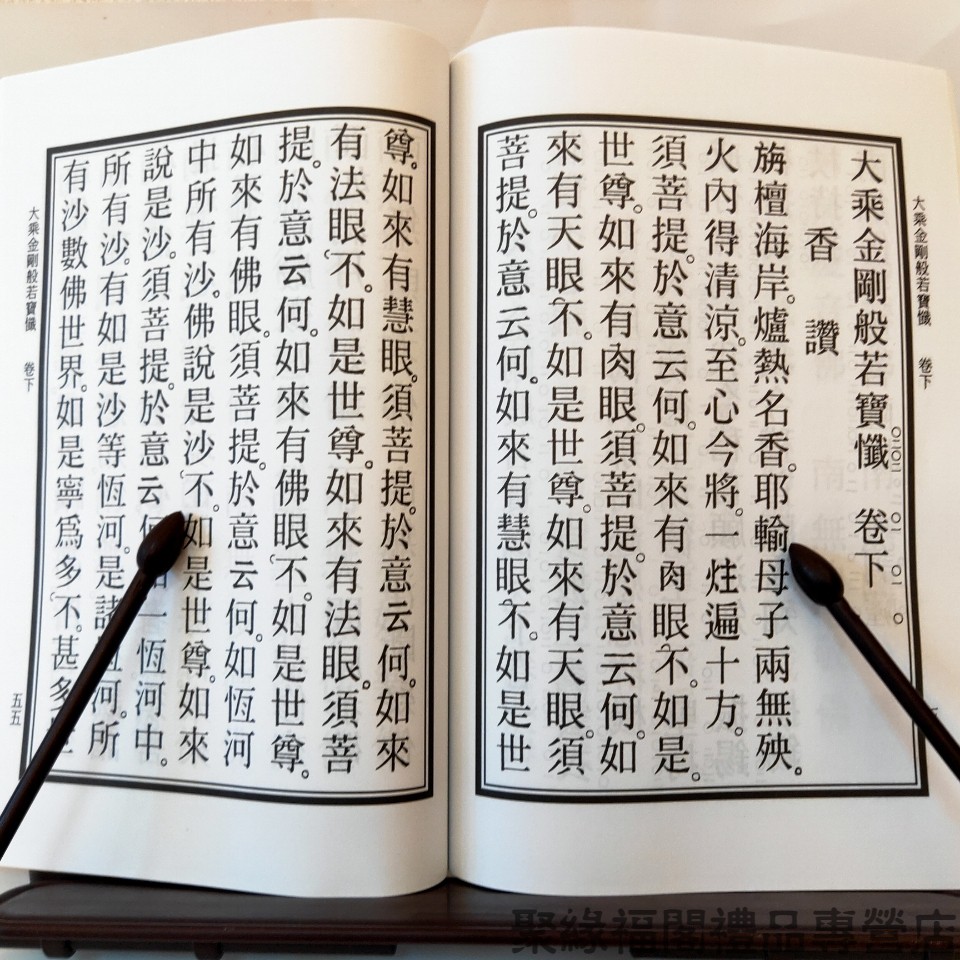 大乘金剛般若寶懺 卷下
大乘金剛般若寶懺 卷下
香 讚
旃檀海岸。爐熱名香。耶輸母子兩無殃。
火內得清涼。至心今將。一炷遍十方。
須菩提。於意云何。如來有肉眼。不。如是。
世尊。如來有肉眼。須菩提。於意云何。如
來有天眼。不。如是世尊。如來有天眼。須
菩提。於意云何。如來有慧眼。不。如是世
尊。如來有慧眼。須菩提。於意云何。如來
有法眼。不。如是世尊。如來有法眼。須菩
提。於意云何。如來有佛眼。不。如是世尊。
如來有佛眼。須菩提。於意云何。如恆河
中所有沙。佛說是沙。不。如是世尊。如來
說是沙。須菩提。於意云 一恆河中。
所有沙。有如是沙等恆河。是諸 河。所
有沙數佛世界。如是寧爲多。不。甚多
大乘金剛般若寶懺 卷下
五五
聚緣福閣禮品專營店